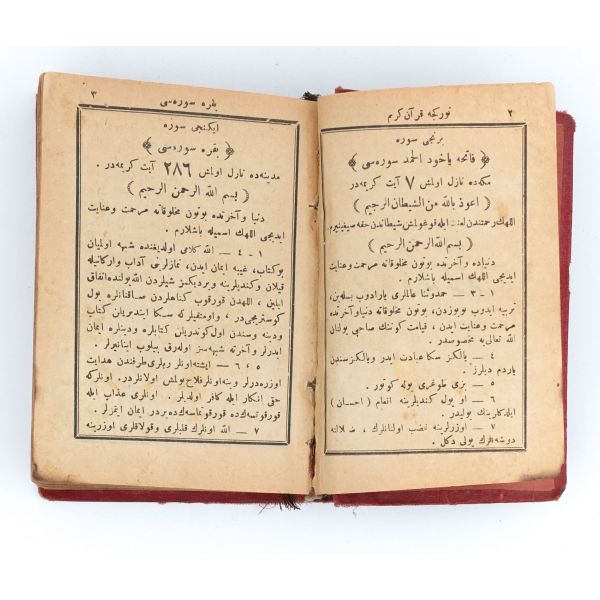 ٢
تورکجه قرآن کریم
برنجی سوره
﴿ فاتحه یاخود الحمد سوره‌سی ﴾
مکه‌ده نازل اولمش ٧ آیت کریمه‌در .
( اعوذ بالله من الشیطان الرجیم )
اللهك رحمتندن ایله قوغولمش شیطاندن حقه صیغینیرم
( بسم الله الرحمن الرحیم )
دنیاده و آخرتده بوتون مخلوقاته مرحمت وعنایت
ایدیجی اللهك اسمیله باشلارم .
١ - ٣ — حمدوثنا عالملری یارادوب بسله‌ین،
تربیه ایدوب بویوتن، بوتون مخلوقاته دنیاوآخرتده
مرحمت وعنایت ایدن ، قیامت کوننك صاحبی بولنان
الله تعالی‌یه مخصوصدر.
٤ — یالکز سکا عبادت ایدر ویالکز سندن
یاردم دیلرز .
٥ — بزی طوغری یوله کوتور .
٦ — او یول کندیلرینه انعام ( احسان )
ایله‌دکلرینك یولیدر.
٧ — اوزرلرینه غضب اولنانلرك ، ضلالته
دوشنلرك یولی دکل .
٣
بقره سوره‌سی
ایکنجی سوره
﴿ بقره سوره‌سی ﴾
مدینه‌ده نازل اولمش ٢٨٦ آیت کریمه‌در .
( بسم الله الرحمن الرحیم )
دنیا وآخرتده بوتون مخلوقاته مرحمت وعنایت
ایدیجی اللهك اسمیله باشلارم.
١ - ٤ — الله کلامی اولدیغنده شبهه اولمیان
بوکتاب، غیبه ایمان ایدن، نمازلرنی آداب وارکانیله
قیلان وکندیلرینه ویردیکمز شیلردن الله یولنده انفاق
ایدن، اللهدن قورقوب کناهلردن صاقنانلره یول
کوستریجی‌در ، واومتقیلرکه سکا ایندیریلن کتاب
ودینه وسندن اول کوندریلن کتابلره ودینلره ایمان
ایدرلر وآخرته شبهه‌سز اوله‌رق اینانیرلر.
٥ ، ٦ — ایشته‌اونلر ربلری طرفندن هدایت
اوزره‌درلر وینه‌اونلرفلاح‌بولمش اولانلردر. اونلرکه
حقی انکار ایله کافر اولدیلر . اونلری عذاب ایله
قورقوتسه‌ك‌ده قورقوتماسه‌ك‌ده بردر ایمان ایتمزلر.
٧ — الله اونلرك قلبلری وقولاقلری اوزرینه